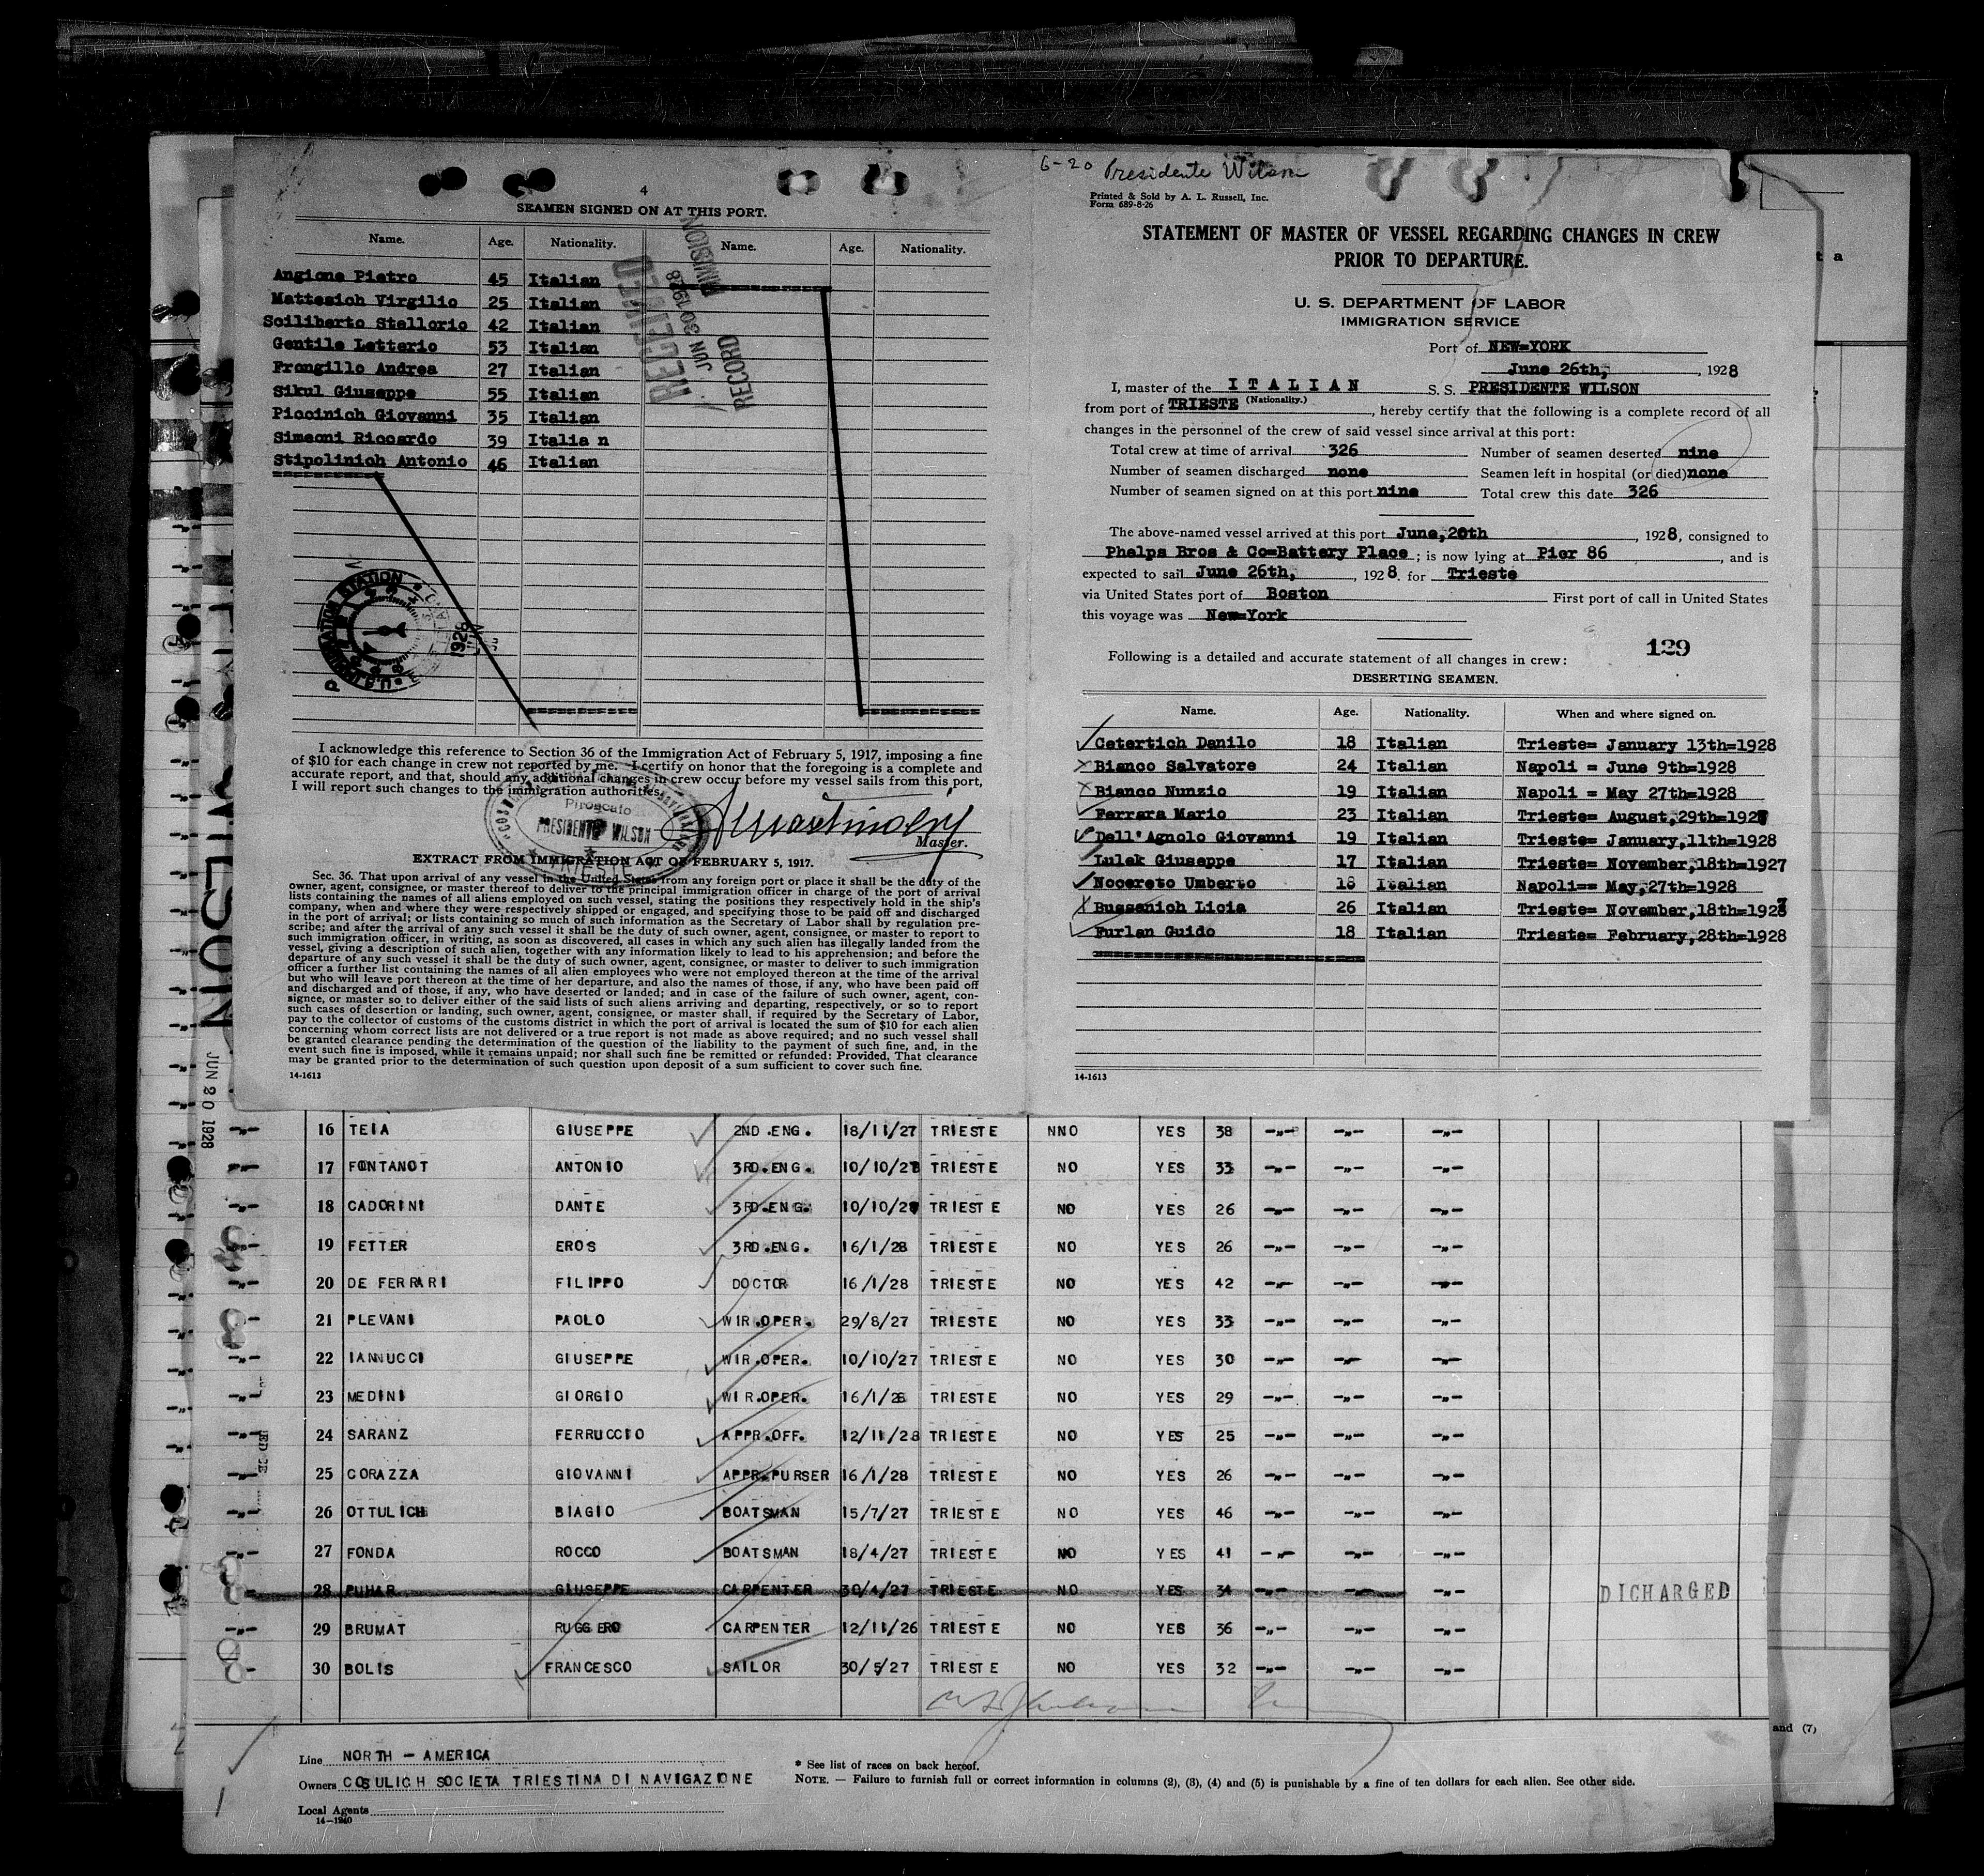 4
SEAMEN SIGNED ON AT THIS PORT.
Name. Age. Nationality. Name. Age. Nationality.
Angione Pietro 45 Italian
Mattesich Virgilio 25 Italian
Sciliberto Stellorio 42 Italian
Gentile Letterio 53 Italian
Frongillo Andrea 27 Italian
Sikul Giuseppe 55 Italian
Piccinich Giovanni 35 Italian
Simeoni Riccardo 39 Italia n
Stipolinich Antonio 46 Italian
RECEIVED
JUN 30 1928
RECORD DIVISION
I acknowledge this reference to Section 36 of the Immigration Act of February 5, 1917, imposing a fine
of $10 for each change in crew not reported by me. I certify on honor that the foregoing is a complete and
accurate report, and that, should any additional changes in crew occur before my vessel sails from this port,
I will report such changes to the immigration authorities.
Piroscafo
PRESIDENTE WILSON
TRIESTE
Master.
EXTRACT FROM IMMIGRATION ACT OF FEBRUARY 5, 1917.
Sec. 36. That upon arrival of any vessel in the United States from any foreign port or place it shall be the duty of the
owner, agent, consignee, or master thereof to deliver to the principal immigration officer in charge of the port of arrival
lists containing the names of all aliens employed on such vessel, stating the positions they respectively hold in the ship's
company, when and where they were respectively shipped or engaged, and specifying those to be paid off and discharged
in the port of arrival; or lists containing so much of such information as the Secretary of Labor shall by regulation pre-
scribe; and after the arrival of any such vessel it shall be the duty of such owner, agent, consignee, or master to report to
such immigration officer, in writing, as soon as discovered, all cases in which any such alien has illegally landed from the
vessel, giving a description of such alien, together with any information likely to lead to his apprehension; and before the
departure of any such vessel it shall be the duty of such owner, agent, consignee, or master to deliver to such immigration
officer a further list containing the names of all alien employees who were not employed thereon at the time of the arrival
but who will leave port thereon at the time of her departure, and also the names of those, if any, who have been paid off
and discharged and of those, if any, who have deserted or landed; and in case of the failure of such owner, agent, con-
signee, or master so to deliver either of the said lists of such aliens arriving and departing, respectively, or so to report
such cases of desertion or landing, such owner, agent, consignee, or master shall, if required by the Secretary of Labor,
pay to the collector of customs of the customs district in which the port of arrival is located the sum of $10 for each alien
concerning whom correct lists are not delivered or a true report is not made as above required; and no such vessel shall
be granted clearance pending the determination of the question of the liability to the payment of such fine, and, in the
event such fine is imposed, while it remains unpaid; nor shall such fine be remitted or refunded: Provided, That clearance
may be granted prior to the determination of such question upon deposit of a sum sufficient to cover such fine.
14-1613
6-20 Presidente Wilson
Printed & Sold by A. L. Russell, Inc.
Form 689-8-26
STATEMENT OF MASTER OF VESSEL REGARDING CHANGES IN CREW
PRIOR TO DEPARTURE.
U. S. DEPARTMENT OF LABOR
IMMIGRATION SERVICE
Port of NEW=YORK
June 26th, , 1928
I, master of the I T A L I A N S. S. PRESIDENTE WILSON
(Nationality.)
from port of TRIESTE , hereby certify that the following is a complete record of all
changes in the personnel of the crew of said vessel since arrival at this port:
Total crew at time of arrival 326 Number of seamen deserted nine
Number of seamen discharged none Seamen left in hospital (or died) none
Number of seamen signed on at this port nine Total crew this date 326
The above-named vessel arrived at this port June,20th , 1928, consigned to
Phelps Bros & Co=Battery Place ; is now lying at Pier 86 , and is
expected to sail June 26th, , 1928. for Trieste
via United States port of Boston First port of call in United States
this voyage was New=York
129
Following is a detailed and accurate statement of all changes in crew:
DESERTING SEAMEN.
Name. Age. Nationality. When and where signed on.
Cetertich Danilo 18 Italian Trieste= January 13th=1928
Bianco Salvatore 24 Italian Napoli = June 9th=1928
Bianco Nunzio 19 Italian Napoli = May 27th=1928
Ferrara Mario 23 Italian Trieste= August,29th=1927
Dell'Agnolo Giovanni 19 Italian Trieste= January,11th=1928
Lulek Giuseppe 17 Italian Trieste= November,18th=1927
Nocereto Umberto 18 Italian Napoli== May,27th=1928
Bussanich Licia 26 Italian Trieste= November,18th=1927
Furlan Guido 18 Italian Trieste= February,28th=1928
14-1613
WILSON
JUN 20 1928
16 TEIA GIUSEPPE 2ND.ENG. 18/11/27 TRIESTE NNO YES 38 -"- -"- -"-
17 FONTANOT ANTONIO 3RD.ENG. 10/10/27 TRIESTE NO YES 33 -"- -"- -"-
18 CADORINI DANTE 3RD.ENG. 10/10/27 TRIESTE NO YES 26 -"- -"- -"-
19 FETTER EROS 3RD.ENG. 16/1/28 TRIESTE NO YES 26 -"- -"- -"-
20 DE FERRARI FILIPPO DOCTOR 16/1/28 TRIESTE NO YES 42 -"- -"- -"-
21 PLEVANI PAOLO WIR.OPER. 29/8/27 TRIESTE NO YES 33 -"- -"- -"-
22 IANNUCCI GIUSEPPE WIR.OPER. 10/10/27 TRIESTE NO YES 30 -"- -"- -"-
23 MEDINI GIORGIO WIR.OPER. 16/1/28 TRIESTE NO YES 29 -"- -"- -"-
24 SARANZ FERRUCCIO APPR.OFF. 12/11/28 TRIESTE NO YES 25 -"- -"- -"-
25 CORAZZA GIOVANNI APPR.PURSER 16/1/28 TRIESTE NO YES 26 -"- -"- -"-
26 OTTULICH BIAGIO BOATSMAN 15/7/27 TRIESTE NO YES 46 -"- -"- -"-
27 FONDA ROCCO BOATSMAN 18/4/27 TRIESTE NO YES 41 -"- -"- -"-
28 PUHAR GIUSEPPE CARPENTER 30/4/27 TRIESTE NO YES 34 -"- -"- -"- DICHARGED
29 BRUMAT RUGGERO CARPENTER 12/11/26 TRIESTE NO YES 36 -"- -"- -"-
30 BOLIS FRANCESCO SAILOR 30/5/27 TRIESTE NO YES 32 -"- -"- -"-
and (7)
Line NORTH - AMERICA
Owners COSULICH SOCIETA TRIESTINA DI NAVIGAZIONE
Local Agents
14-1240
* See list of races on back hereof.
NOTE. — Failure to furnish full or correct information in columns (2), (3), (4) and (5) is punishable by a fine of ten dollars for each alien. See other side.